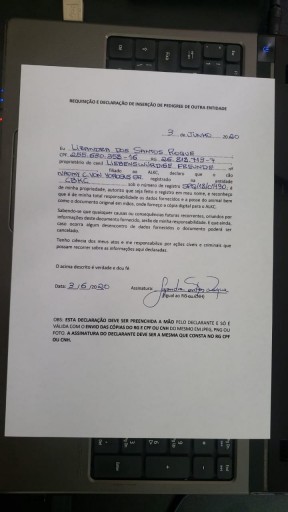 REQUISIÇÃO E DECLARAÇÃO DE INSERÇÃO DE PEDIGREE DE OUTRA ENTIDADE
3 de JUNHO 2020
Eu LIBANDRA DOS SANTOS ROQUE
CPF RG
proprietário do canil LIEBENSWÜRDIGE FREUNDE nº
filiado ao ALKC, declaro que o cão
NAOMI C VON registrado na entidade
CBKC sob o número de registro é
de minha propriedade, autorizo que seja feito o registro em meu nome, e reconheço
que é de minha total responsabilidade os dados fornecidos e a posse do animal bem
como o documento original em mãos, onde forneço a cópia digital para o ALKC.
Sabendo-se que quaisquer causas ou consequências futuras recorrentes, oriundos por
informações deste documento fornecido, serão de minha responsabilidade. E que ainda,
caso ocorra algum desencontro de dados fornecidos o documento poderá ser
cancelado.
Tenho ciência dos meus atos e me responsabilizo por ações cíveis e criminais que
possam recorrer sobre as informações aqui declaradas.
O acima descrito é verdade e dou fé
Data: 3/6/2020 Assinatura:
(Igual ao RG ou CNH)
OBS: ESTA DECLARAÇÃO DEVE SER PREENCHIDA A MÃO PELO DECLARANTE E SÓ É
VÁLIDA COM O ENVIO DAS CÓPIAS DO RG E CPF OU CNH DO MESMO EM JPEG, PNG OU
FOTO. A ASSINATURA DO DECLARANTE DEVE SER A MESMA QUE CONSTA NO RG CPF
OU CNH.